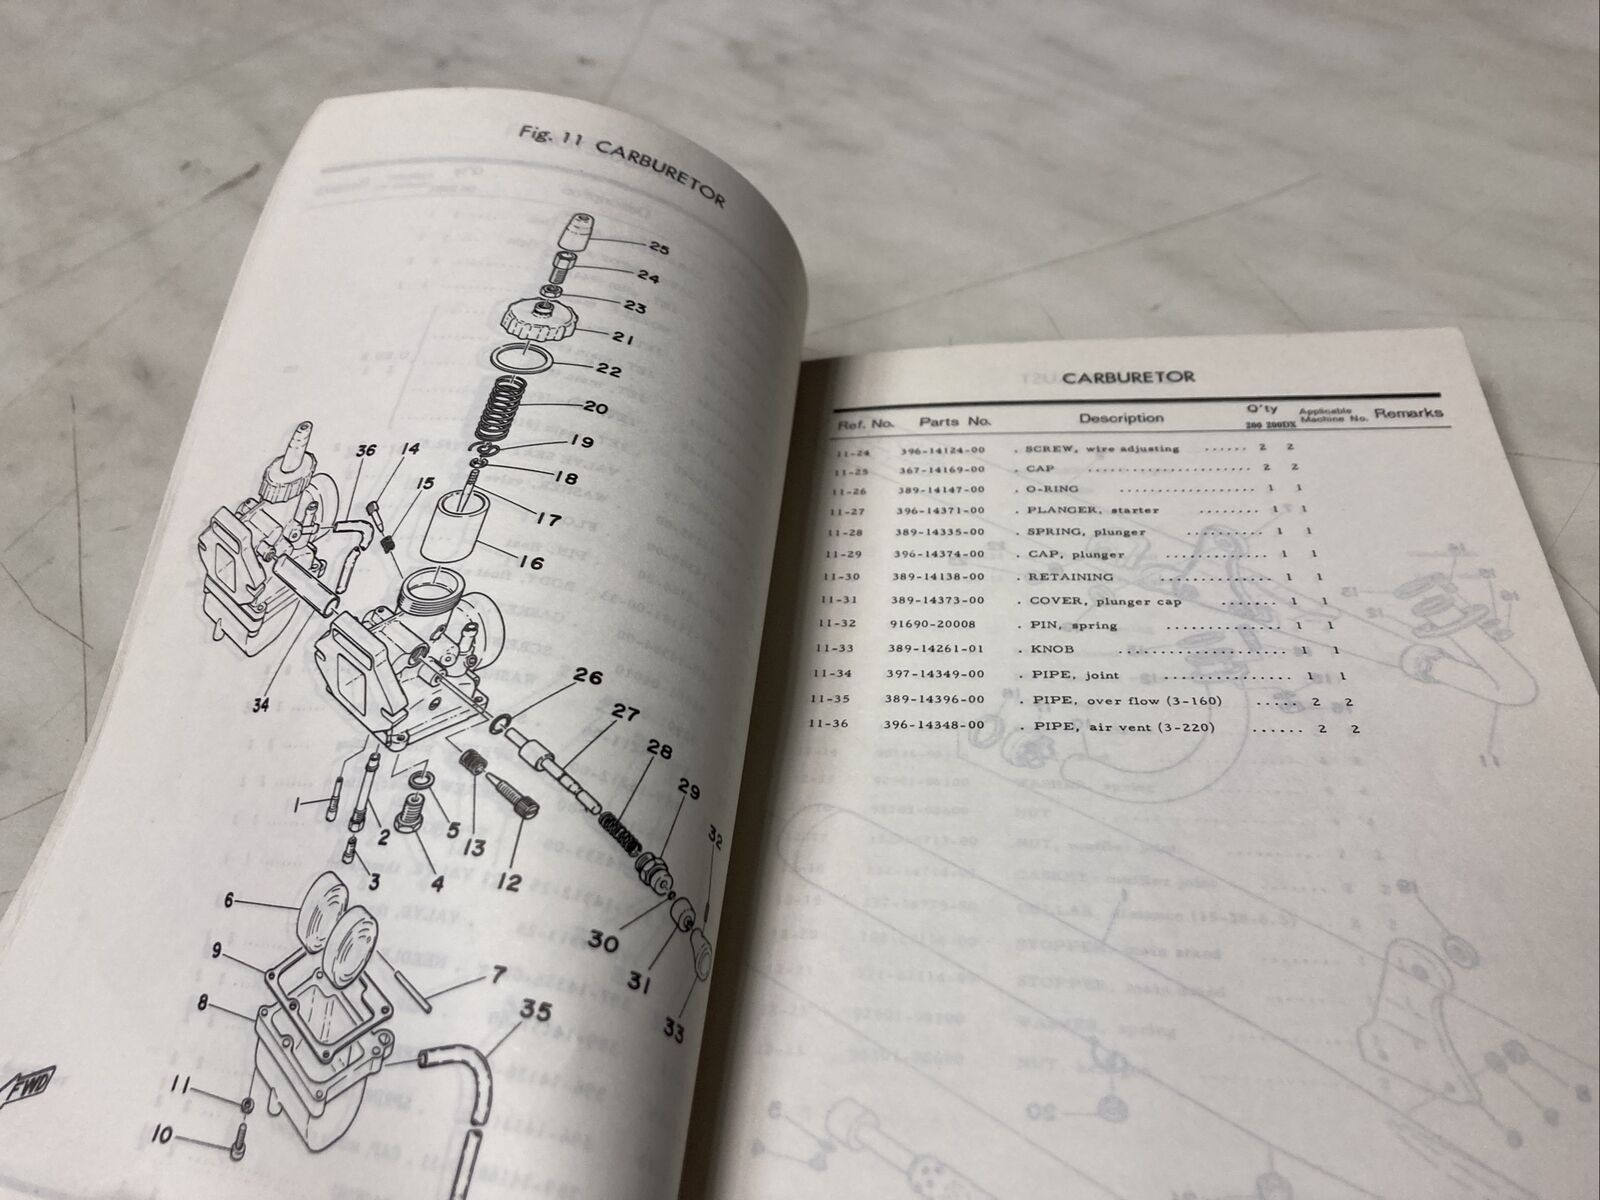 Fig. 11 CARBURETOR
25
24
23
21
22
20
19
18
17
16
36
14
15
34
26
27
28
29
32
1
2
3
4
5
13
12
30
31
33
6
9
8
7
35
11
10
FWD
CARBURETOR
Ref. No. Parts No. Description Q'ty Applicable Machine No. Remarks
200 200DX
11-24 396-14124-00 . SCREW, wire adjusting ...... 2 2
11-25 367-14169-00 . CAP .................... 2 2
11-26 389-14147-00 . O-RING .................. 1 1
11-27 396-14371-00 . PLANGER, starter ........ 1 1
11-28 389-14335-00 . SPRING, plunger .......... 1 1
11-29 396-14374-00 . CAP, plunger ............. 1 1
11-30 389-14138-00 . RETAINING ............... 1 1
11-31 389-14373-00 . COVER, plunger cap ....... 1 1
11-32 91690-20008 . PIN, spring .............. 1 1
11-33 389-14261-01 . KNOB .................... 1 1
11-34 397-14349-00 . PIPE, joint .............. 1 1
11-35 389-14396-00 . PIPE, over flow (3-160) ..... 2 2
11-36 396-14348-00 . PIPE, air vent (3-220) ...... 2 2